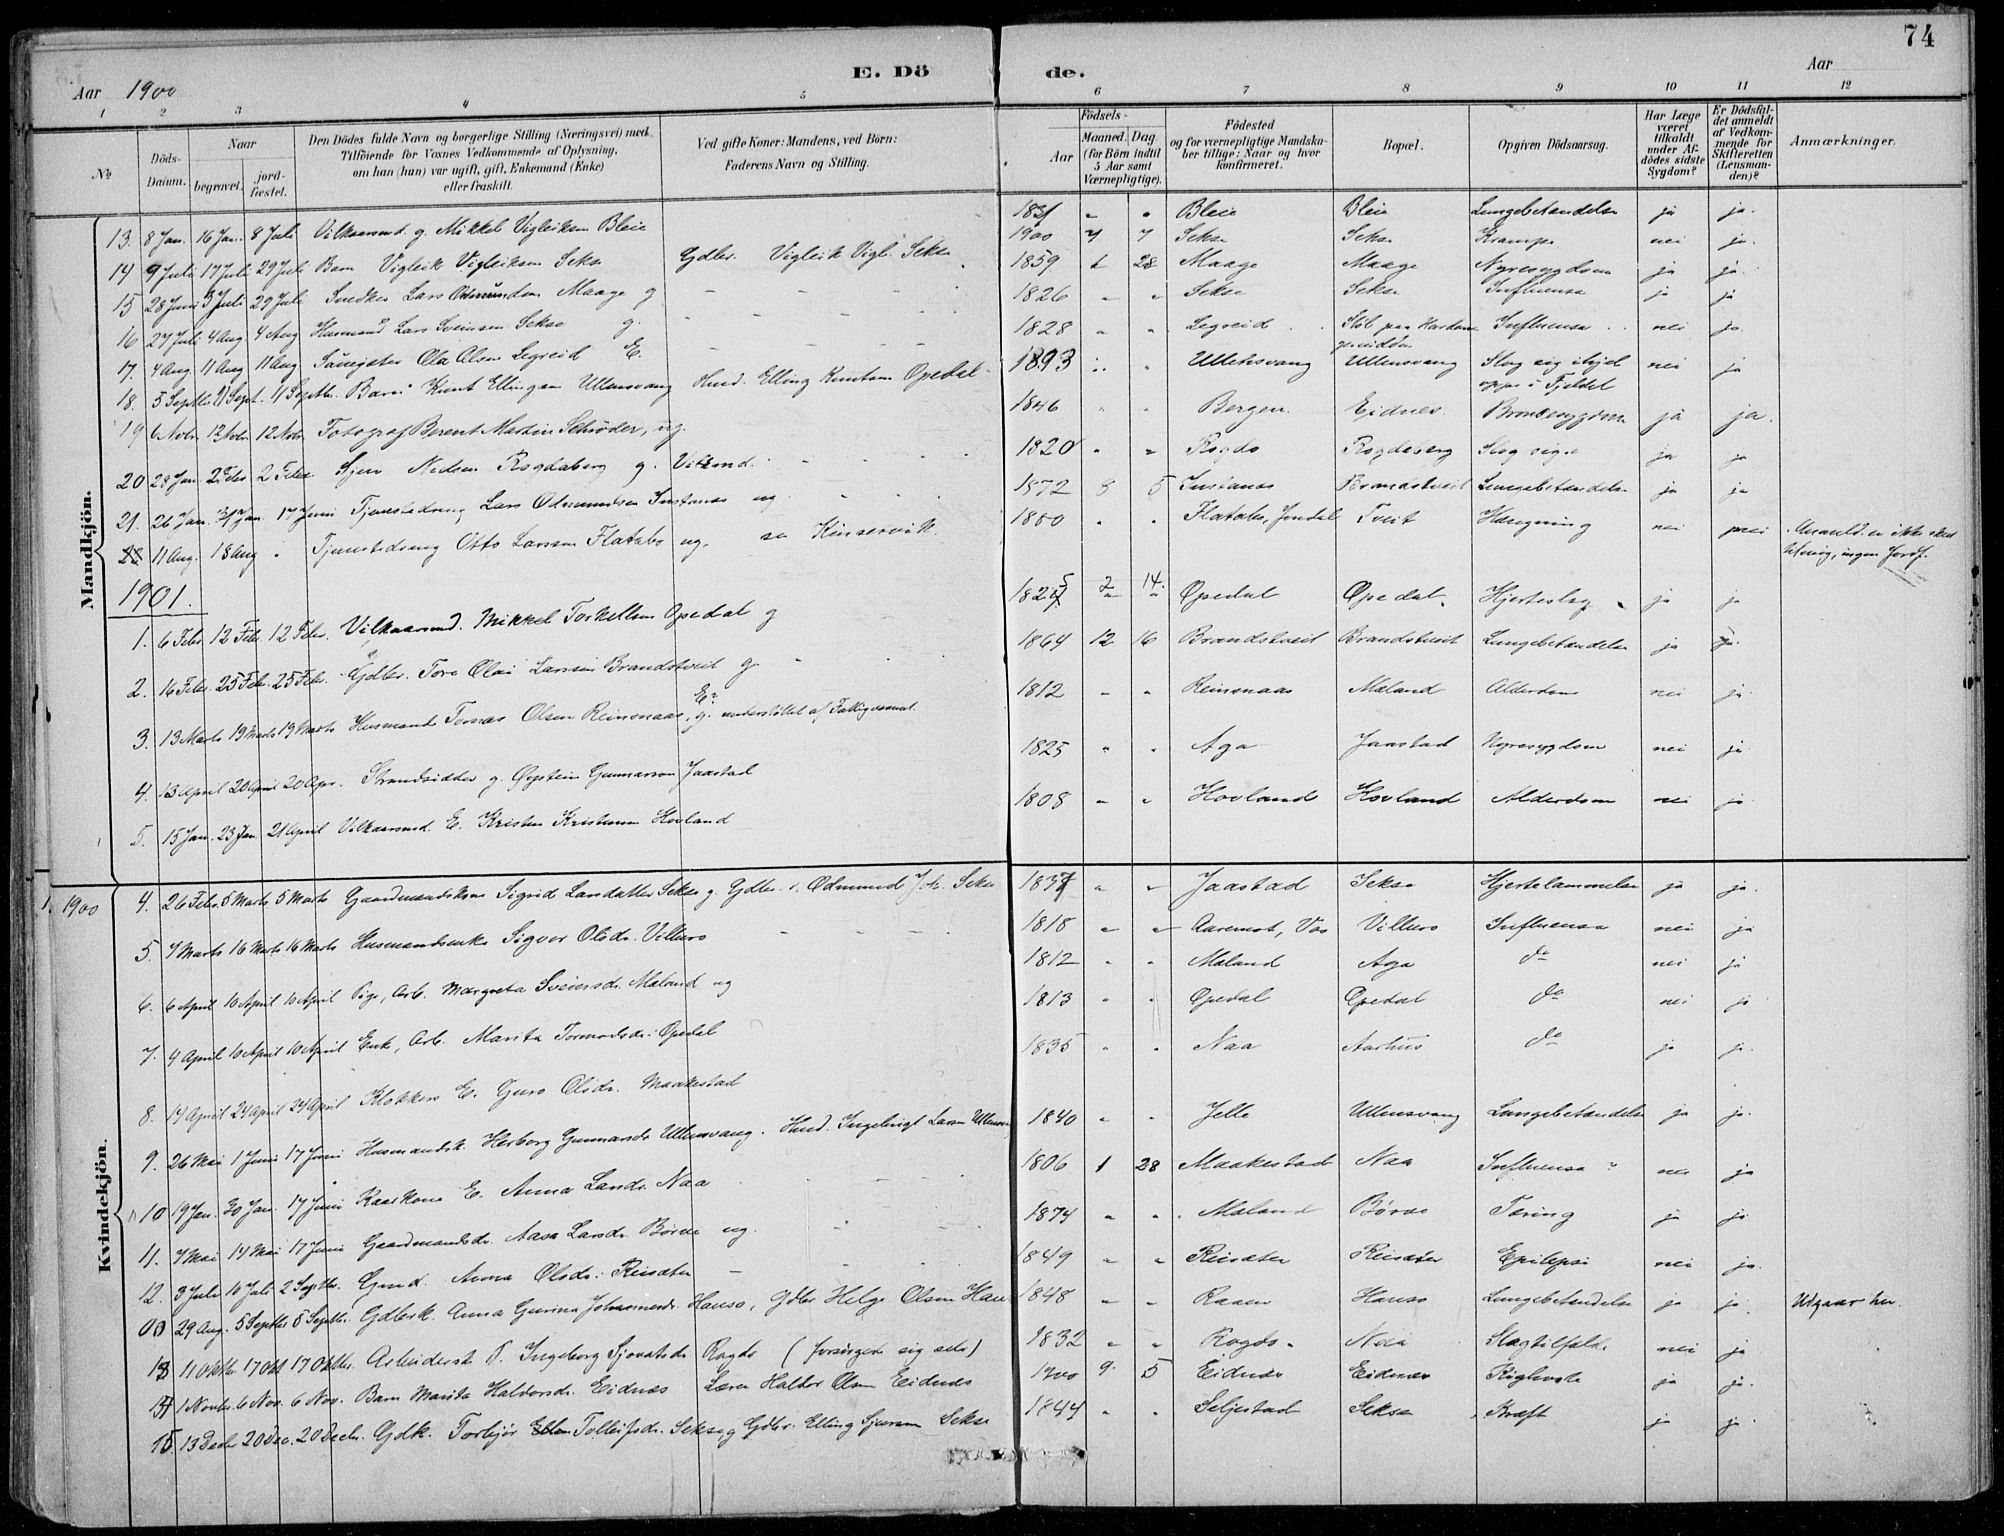 74
E. Døde.
Aar 1900
Aar
1 2 3 4 5 6 7 8 9 10 11 12
№
Døds-Datum.
Naar
begravet.
jordfæstet.
Den Dødes fulde Navn og borgerlige Stilling (Næringsvei) med
Tilføiende for Voxnes Vedkommende af Oplysning,
om han (hun) var ugift, gift, Enkemand (Enke)
eller fraskilt.
Ved gifte Koner: Mandens, ved Børn:
Faderens Navn og Stilling.
Fødsels-
Aar
Maaned. Dag
(for Børn indtil
5 Aar samt
Værnepligtige).
Fødested
og for værnepligtige Mandska-
ber tillige: Naar og hvor
konfirmeret.
Bopæl.
Opgiven Dødsaarsag.
Har Læge
været
tilkaldt
under Af-
dødes sidste
Sygdom?
Er Dødsfal-
det anmeldt
af Vedkom-
mende for
Skifteretten
(Lensman-
den)?
Anmærkninger.
Mandkjön.
13. 8 Jan. 16 Jan. 8 Juli Vilkaarsmd. g. Mikkel Vigleiksen Bleie 1831 " " Bleie Bleie Lungebetændelse ja ja.
14 9 Juli 17 Juli 29 Juli Barn Vigleik Vigleiksen Sekse Gdbr. Vigleik Vigl. Sekse 1900 7 7 Sekse Sekse Krampe nei ja.
15 28 Juni 3 Juli 29 Juli Snedker Lars Maage g 1859 28 Maage Maage Nyresygdom ja ja
16 27 Juli 4 Aug 4 Aug Husmand Lars Sveinsen Sekse g. 1826 " " Sekse Sekse Influensa ja ja
17. 4 Aug. 11 Aug 11 Aug Ola Olsen Legreid E. 1828 " " Legreid Influensa nei ja.
18. 5 Septbr. 11 Sept. 11 Septbr. Barn Knut Ellingsen Ullensvang Husmd. Elling Knutsen Opedal 1893 " " Ullensvang Ullensvang Slog sig ihjel
oppe i Fjeldet nei ja
19 6 Nobr. 12 Nobr. 12 Nobr. Fotograf Berent Martin Schrøder, ug. 1846 " " Bergen. Eidnes. ja ja.
20 28 Jan. 2 Febr. 2 Febr Sjur Nilsen Rogdaberg g. Vilkmd. 1820 " " Rogdo Rogdaberg Slog sig. ja ja
21. 26 Jan. 31 Jan. 17 Juni Tjenestedreng Lars Odmundsen Instanes ug 1872 8 5 Instanes Brandstveit Lungebetændelse ja ja
22 11 Aug. 18 Aug " Tjenestedreng Otto Larsen Flatabø ug. Kinservik. 1880 " " Flatabø, Jondal Tveit nei nei Anmeld. er ikke sked
ingen Jordf.
1901.
1. 6 Febr. 12 Febr. 12 Febr. Vilkaarsmd. Mikkel Torkelsen Opedal g 1825 2 14 Opedal Opedal. Hjerteslag ja ja
2. 16 Febr. 25 Febr. 25 Febr. Gdbr. Tore Olai Larsen Brandstveit g. 1864 12 16 Brandstveit Brandstveit Lungebetændelse ja ja.
3. 13 Marts 19 Marts 19 Marts Husmand Tomas Olsen Reinsnaas, E? g. understöttet af Fattigvæsnet. 1812 " " Reinsnaas Mæland Alderdom nei ja.
4. 13 April 20 April 20 Apr. Strandsidder g. Øystein Gunnarson Jaastad 1825 " " Aga Jaastad Nyresygdom nei ja.
5. 15 Jan. 23 Jan. 21 April Vilkaarsmd. E. Kristen Hovland 1808 " " Hovland Hovland Alderdom nei ja.
Kvindekjön.
1900
4. 26 Febr. 5 Marts 5 Marts Gaardmandskone Sigrid Larsdatter Sekse g Gdbr. Odmund Joh. Sekse 1837 " " Jaastad Sekse Hjertelammelse ja ja.
5. 7 Marts 16 Marts 16 Marts Husmandsenke Sigvor Olsdr. Villure 1818 " " Aaremot, Vos Villure Influensa nei ja
6. 6 April 10 April 10 April Pige, Arb. Margreta Sveinsdr. Mæland ug 1812 " " Mæland Aga do nei ja
7. 4 April 10 April 10 April Enke, Arb. Marita Tormodsdr. Opedal 1813 " " Opedal Opedal do nei ja
8. 14 April 24 April 24 April Klokkers E. Guro Olsdr. Maakestad 1835 " " Naa Aarhus do ja ja.
9. 26 Mai 1 Juni 17 Juni Husmandsk. Herborg Gunnarsdr Ullensvang. Husmd. Ingebrigt Larsen Ullensv. 1840 " " Jelle Ullensvang Lungebetændelse ja ja.
10 19 Jan. 30 Jan. 17 Juni Kaarkone E. Anna Larsdr. Naa 1806 1 28 Maakestad Naa Influensa? nei ja
11. 7 Mai 14 Mai 17 Juni Gaardmandsdr. Aasa Larsdr. Børve ug. 1874 " " Mæland Børve Tæring ja ja
12. 3 Juli 10 Juli 2 Septbr. Anna Olsdr. Reisæter 1849 " " Reisæter Reisæter Epilepsi nei ja.
00 29 Aug. 5 Septbr 5 Septbr. Gdbrsk. Anna Gurina Johannesdr. Hauso, Gdbr Helge Olsen Hau 1848 " " Raaen Hauso Lungebetændelse ja ja. Udgaar her.
13 11 Oktbr. 17 Okt 17 Oktbr. Arbeidersk P. Ingeborg Sjovatsdr Rogdo (forsörgede sig selv) 1832 " " Rogdo. Naa Slagtilfælde. nei ja
14 1 Novbr. 6 Nov. 6 Nov. Barn Marita Haldorsdr. Eidnes Lærer Haldor Olsen Eidnes 1900 9. 5 Eidnes Eidnes Kighoste ja ja.
15. 13 Decbr 20 Dec. 20 Decbr. Gdk. Torbjør Tolleifsdr. Sekse g Gdbr. Elling Sjursen Sekse 1844 " " Seljestad Sekse Kræft ja ja.